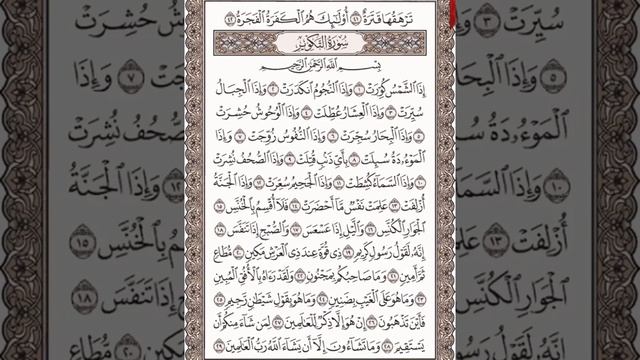 تَرْهَقُهَا قَتَرَةٌ ٤١ أُولَٰئِكَ هُمُ الْكَفَرَةُ الْفَجَرَةُ ٤٢
سُورَةُ التَّكْوِيرِ
بِسْمِ اللَّهِ الرَّحْمَٰنِ الرَّحِيمِ
إِذَا الشَّمْسُ كُوِّرَتْ ١ وَإِذَا النُّجُومُ انْكَدَرَتْ ٢ وَإِذَا الْجِبَالُ
سُيِّرَتْ ٣ وَإِذَا الْعِشَارُ عُطِّلَتْ ٤ وَإِذَا الْوُحُوشُ حُشِرَتْ
٥ وَإِذَا الْبِحَارُ سُجِّرَتْ ٦ وَإِذَا النُّفُوسُ زُوِّجَتْ ٧ وَإِذَا
الْمَوْءُودَةُ سُئِلَتْ ٨ بِأَيِّ ذَنْبٍ قُتِلَتْ ٩ وَإِذَا الصُّحُفُ نُشِرَتْ
١٠ وَإِذَا السَّمَاءُ كُشِطَتْ ١١ وَإِذَا الْجَحِيمُ سُعِّرَتْ ١٢ وَإِذَا الْجَنَّةُ
أُزْلِفَتْ ١٣ عَلِمَتْ نَفْسٌ مَا أَحْضَرَتْ ١٤ فَلَا أُقْسِمُ بِالْخُنَّسِ ١٥
الْجَوَارِ الْكُنَّسِ ١٦ وَاللَّيْلِ إِذَا عَسْعَسَ ١٧ وَالصُّبْحِ إِذَا تَنَفَّسَ ١٨
إِنَّهُ لَقَوْلُ رَسُولٍ كَرِيمٍ ١٩ ذِي قُوَّةٍ عِنْدَ ذِي الْعَرْشِ مَكِينٍ ٢٠ مُطَاعٍ
ثَمَّ أَمِينٍ ٢١ وَمَا صَاحِبُكُمْ بِمَجْنُونٍ ٢٢ وَلَقَدْ رَآهُ بِالْأُفُقِ الْمُبِينِ
٢٣ وَمَا هُوَ عَلَى الْغَيْبِ بِضَنِينٍ ٢٤ وَمَا هُوَ بِقَوْلِ شَيْطَانٍ رَجِيمٍ ٢٥
فَأَيْنَ تَذْهَبُونَ ٢٦ إِنْ هُوَ إِلَّا ذِكْرٌ لِلْعَالَمِينَ ٢٧ لِمَنْ شَاءَ مِنْكُمْ أَنْ
يَسْتَقِيمَ ٢٨ وَمَا تَشَاءُونَ إِلَّا أَنْ يَشَاءَ اللَّهُ رَبُّ الْعَالَمِينَ ٢٩